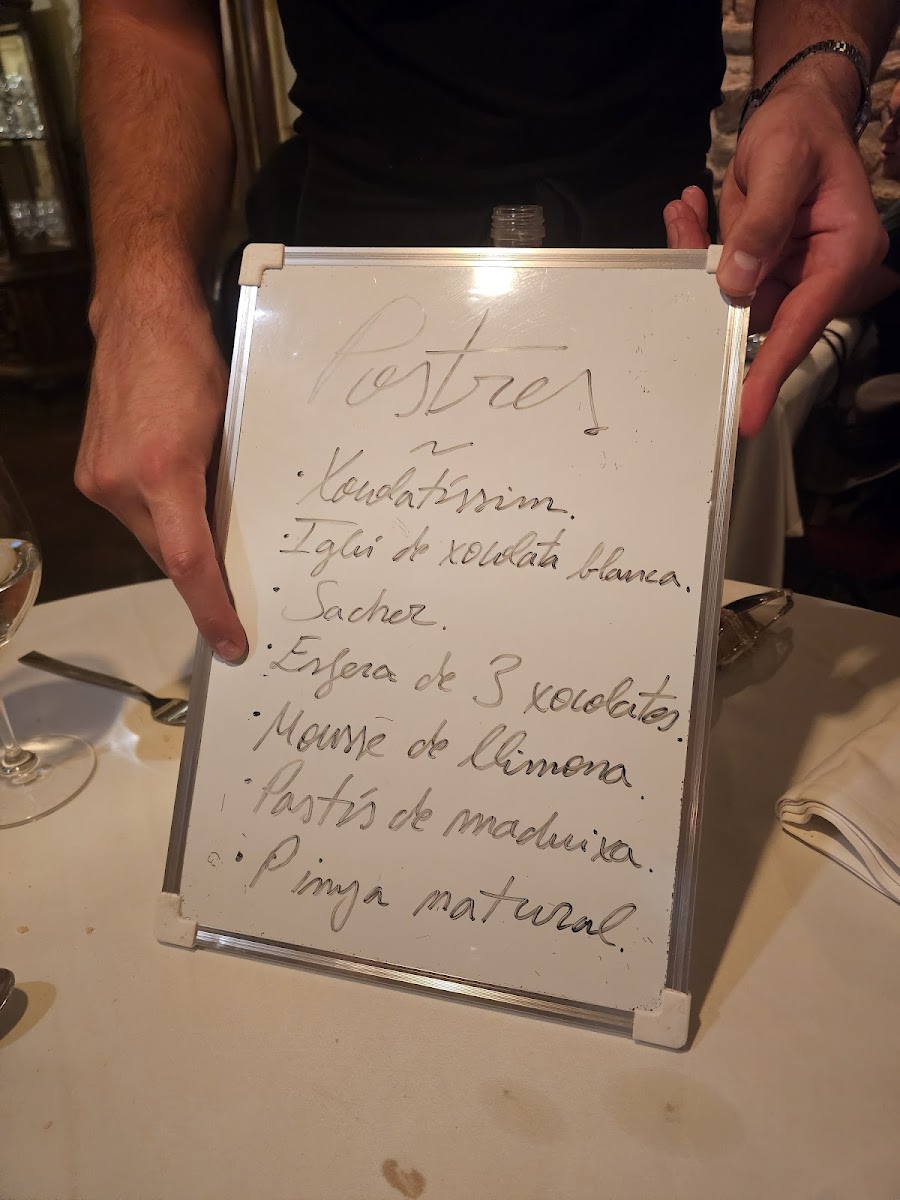 Postres
~
· Xocolatíssim.
· Iglú de xocolata blanca.
· Sacher.
· Esfera de 3 xocolates.
· Moussé de llimona.
· Pastís de maduixa.
· Pinya natural.